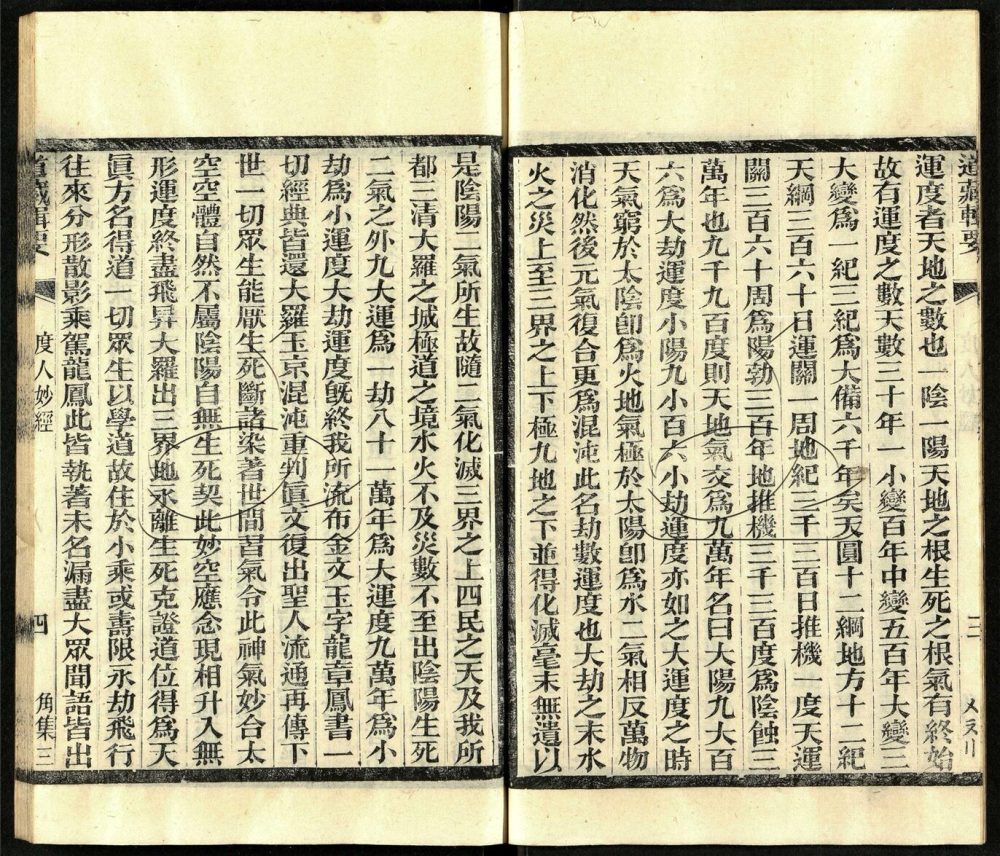 道藏輯要
運度者天地之數也一陰一陽天地之根生死之根氣有終始
故有運度之數天數三十年一小變百年中變五百年大變三
大變爲一紀三紀爲大備六千年矣天圓十二綱地方十二紀
天綱三百六十日運關一周地紀三千三百日推機一度天運
關三百六十周爲陽勃三百年地推機三千三百度爲陰蝕三
萬年也九千九百度則天地氣交爲九萬年名曰大陽九大百
六爲大劫運度小陽九小百六小劫運度亦如之大運度之時
天氣窮於太陰卽爲火地氣極於太陽卽爲水二氣相反萬物
消化然後元氣復合更爲混沌此名劫數運度也大劫之末水
火之災上至三界之上下極九地之下並得化滅毫末無遺以
是陰陽二氣所生故隨二氣化滅三界之上四民之天及我所
都三清大羅之城極道之境水火不及災數不至出陰陽生死
二氣之外九大運爲一劫八十一萬年爲大運度九萬年爲小
劫爲小運度大劫運度旣終我所流布金文玉字龍章鳳書一
切經典皆還大羅玉京混沌重判眞文復出聖人流通再傳下
世一切眾生能厭生死斷諸染著世間習氣令此神氣妙合太
空空體自然不屬陰陽自無生死契此妙空應念現相升入無
形運度終盡飛昇大羅出三界地永離生死克證道位得爲天
眞方名得道一切眾生以學道故住於小乘或壽限永劫飛行
往來分形散影乘駕龍鳳此皆執著未名漏盡大眾聞語皆出
道藏輯要
度人妙經
四
角集三